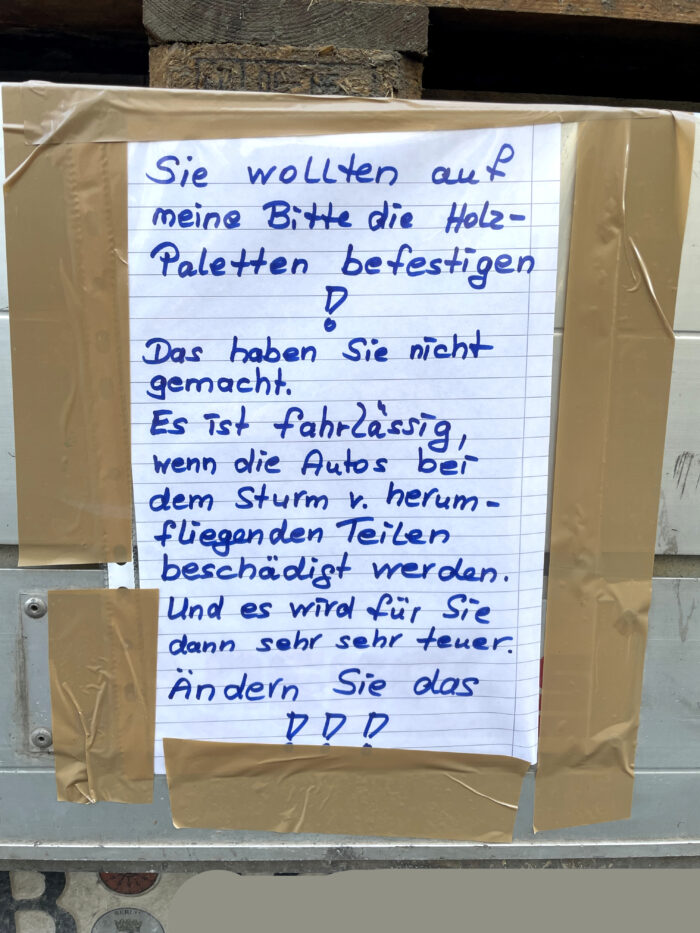 Sie wollten auf
meine Bitte die Holz-
Paletten befestigen
!
Das haben Sie nicht
gemacht.
Es ist fahrlässig,
wenn die Autos bei
dem Sturm v. herum-
fliegenden Teilen
beschädigt werden.
Und es wird für Sie
dann sehr sehr teuer.
Ändern Sie das
!!!
B
BERLIN